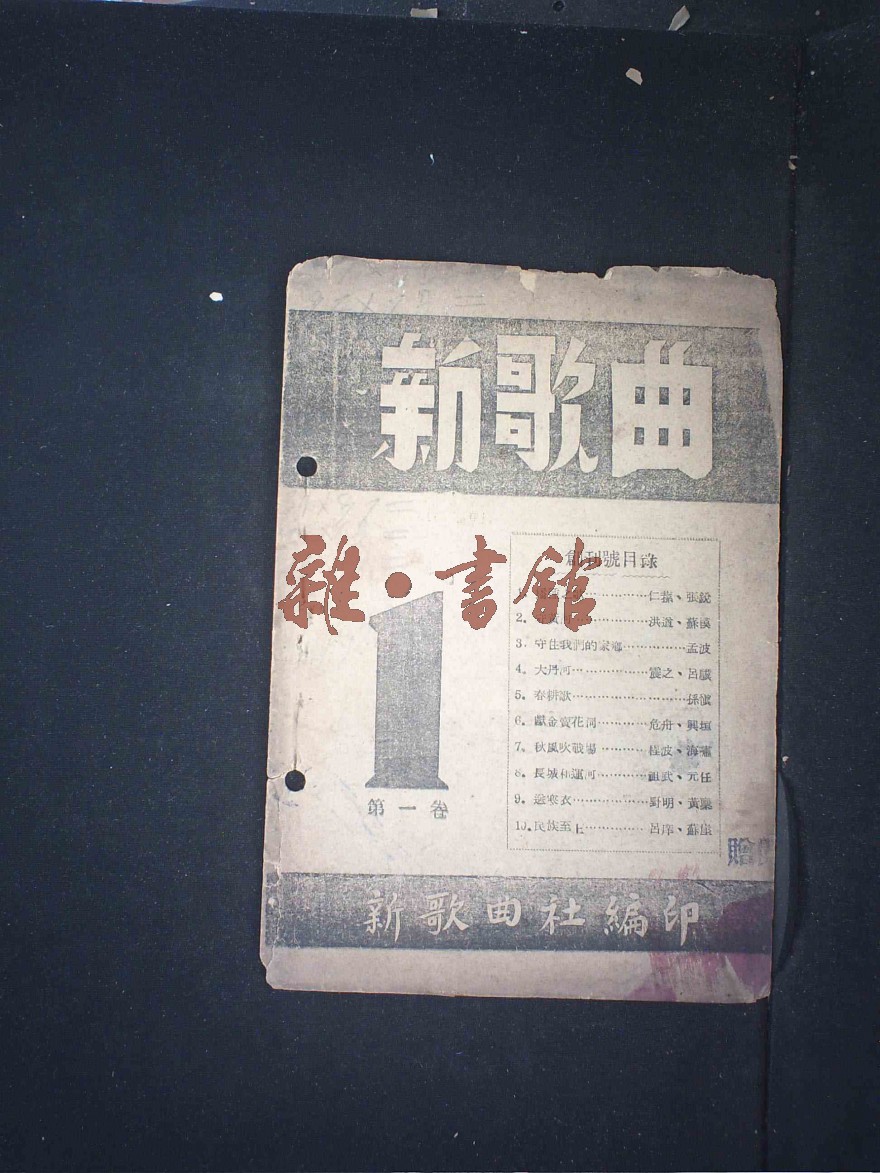 新歌曲
雜·書館
1
第一卷
創刊號目錄
仁、張銳
2. 洪道、蘇
3. 守住我們的家鄉……………孟波
4. 大丹河…………震之、呂驥
5. 春耕歌…………………孫慎
6. 獻金賣花詞…………危舟、興垣
7. 秋風吹戰場………桂波、海
8. 長城和運河………祖武、元任
9. 送寒衣……………野明、黃
10. 民族至上…………呂庠、蘇
贈
新歌曲社編印